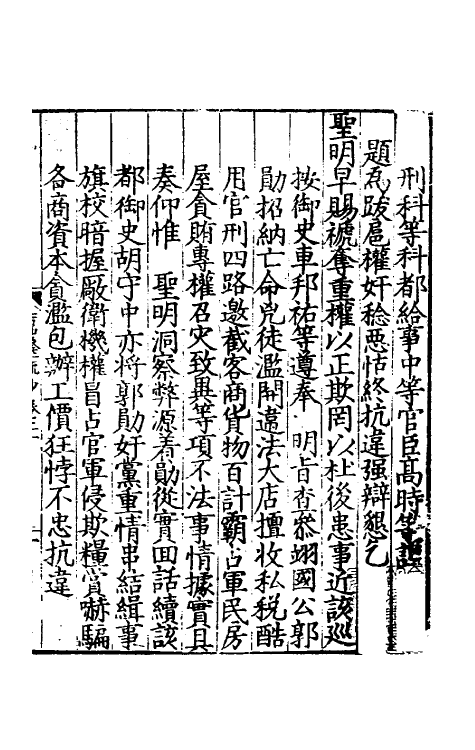 刑科等科都給事中等官臣高時等謹
題為跋扈權奸稔惡怙終抗違強辯懇乞
聖明早賜褫奪重權以正欺罔以杜後患事近該巡
按御史車邦祐等遵奉 明旨查叅翊國公郭
勛招納亡命兇徒濫開違法大店擅收私稅酷
用官刑四路邀截客商貨物百計霸占軍民房
屋貪賄專權召災致異等項不法事情據實具
奏仰惟 聖明洞察弊源着勛從實回話續該
都御史胡守中亦將郭勛奸黨重情串結緝事
旗校暗握厰衛機權冒占官軍侵欺糧賞嚇騙
各商資本貪濫包辦工價狂悖不忠抗違